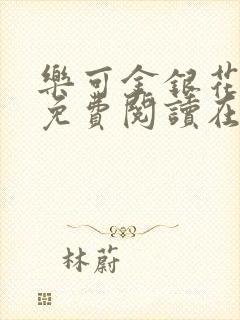 樂可金銀花
免費閱讀在
林蔚